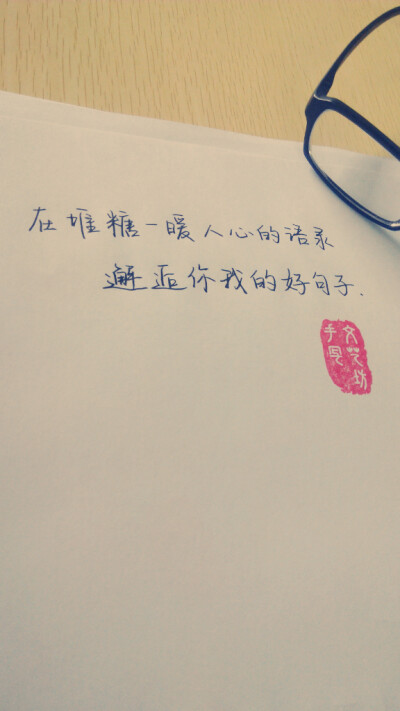 在堆糖一暖人心的语录
邂逅你我的好句子.
文艺坊
手写